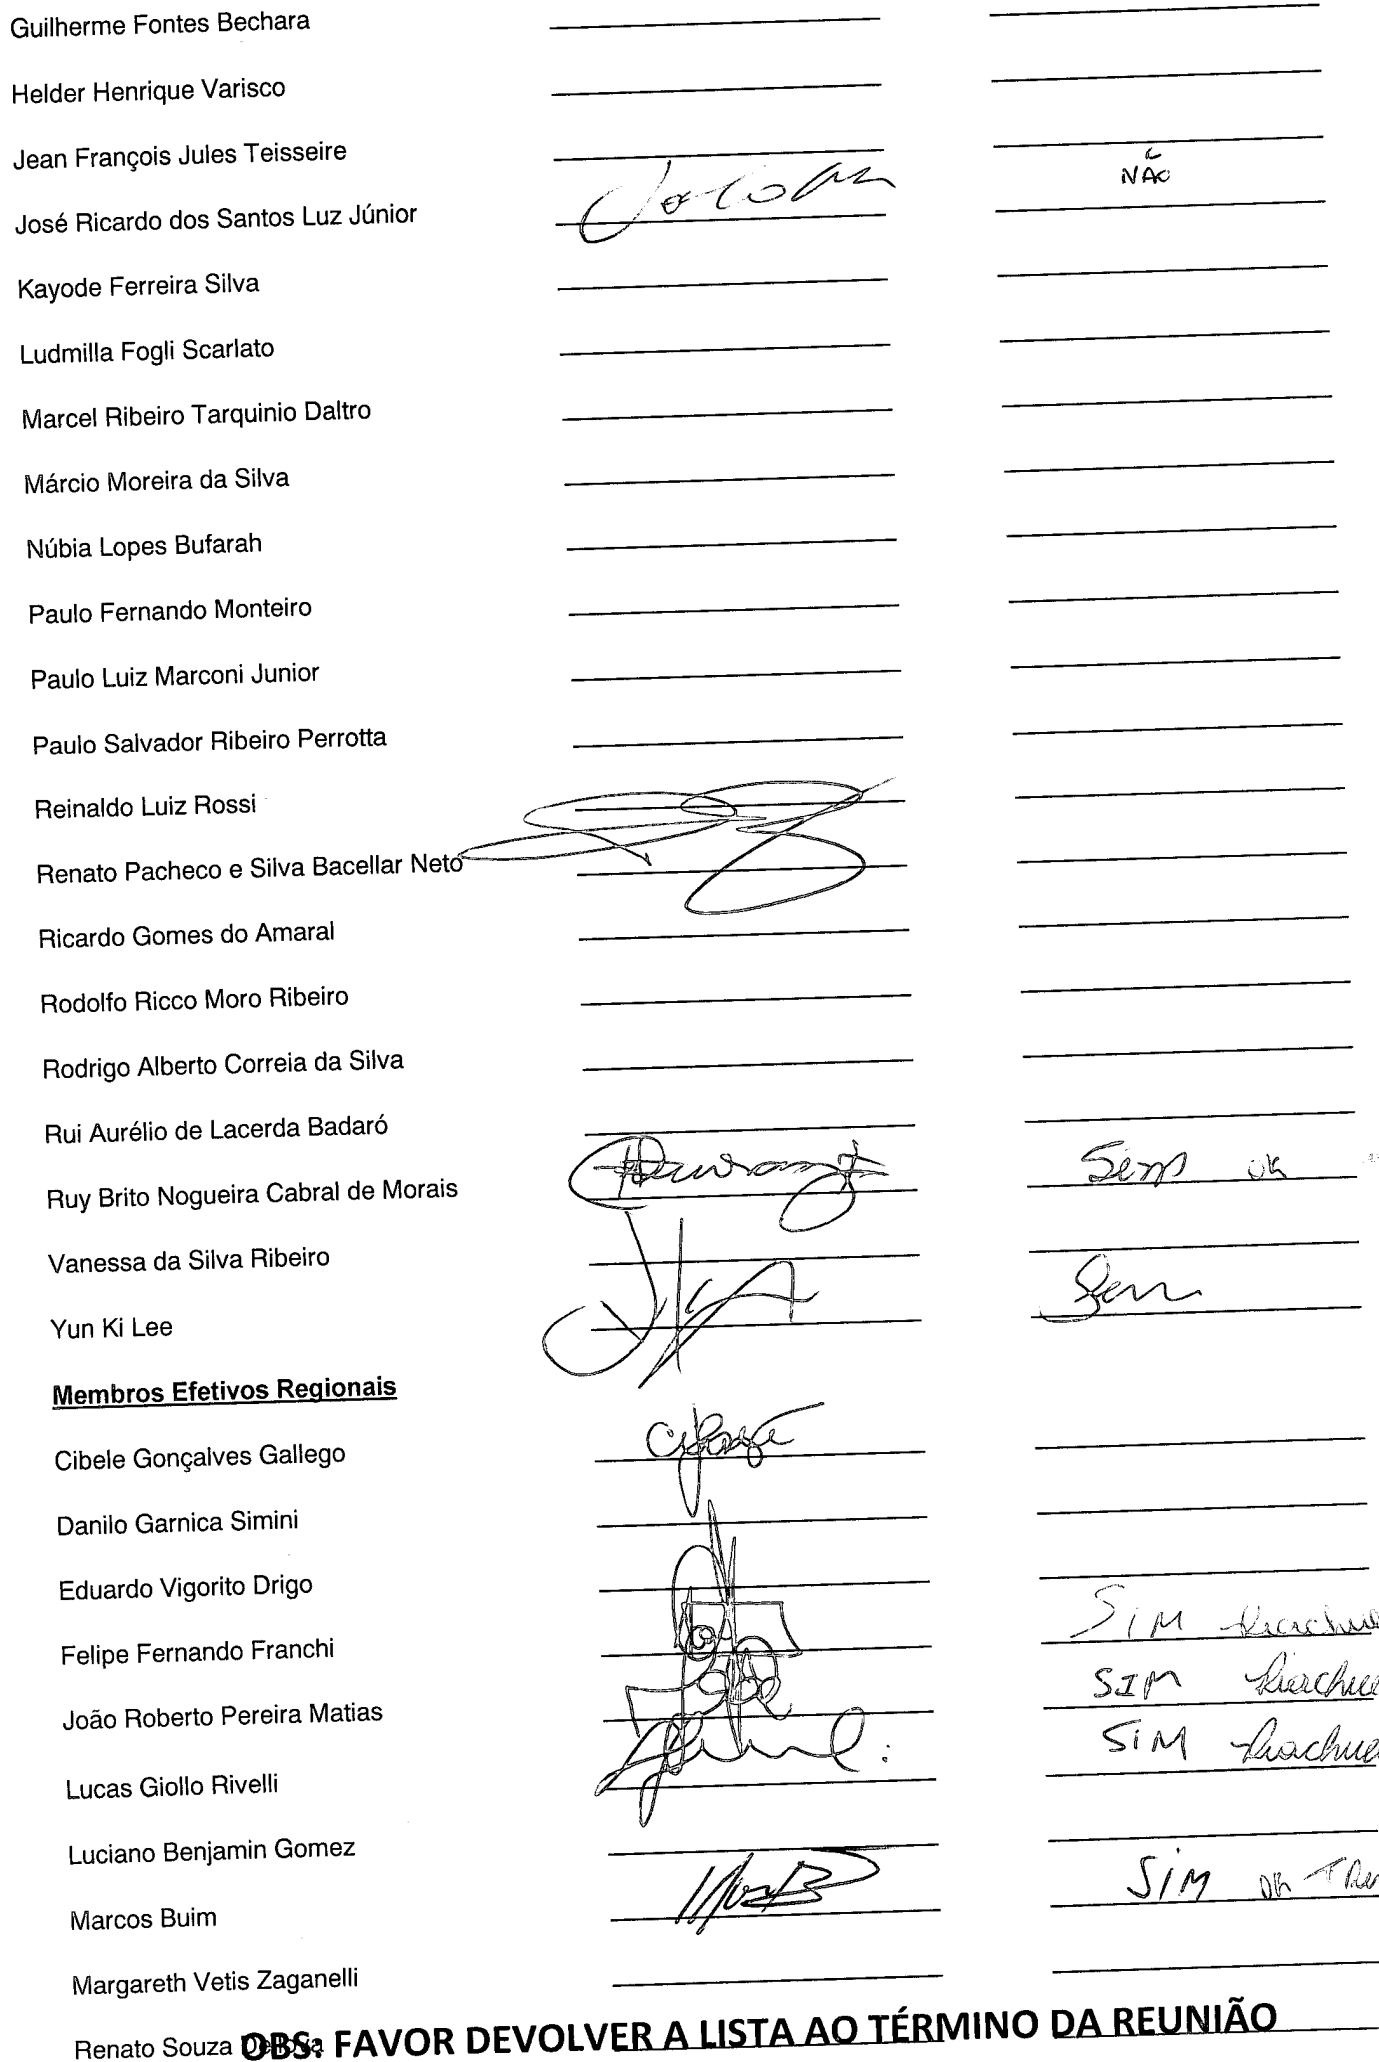 Guilherme Fontes Bechara
Helder Henrique Varisco
Jean François Jules Teisseire
NÃO
José Ricardo dos Santos Luz Júnior
Kayode Ferreira Silva
Ludmilla Fogli Scarlato
Marcel Ribeiro Tarquinio Daltro
Márcio Moreira da Silva
Núbia Lopes Bufarah
Paulo Fernando Monteiro
Paulo Luiz Marconi Junior
Paulo Salvador Ribeiro Perrotta
Reinaldo Luiz Rossi
Renato Pacheco e Silva Bacellar Neto
Ricardo Gomes do Amaral
Rodolfo Ricco Moro Ribeiro
Rodrigo Alberto Correia da Silva
Rui Aurélio de Lacerda Badaró
Ruy Brito Nogueira Cabral de Morais Sim ok
Vanessa da Silva Ribeiro
Yun Ki Lee Sim
Membros Efetivos Regionais
Cibele Gonçalves Gallego
Danilo Garnica Simini
Eduardo Vigorito Drigo
Felipe Fernando Franchi SIM
João Roberto Pereira Matias SIM
Lucas Giollo Rivelli SIM
Luciano Benjamin Gomez
Marcos Buim SIM ok
Margareth Vetis Zaganelli
Renato Souza
OBS: FAVOR DEVOLVER A LISTA AO TÉRMINO DA REUNIÃO